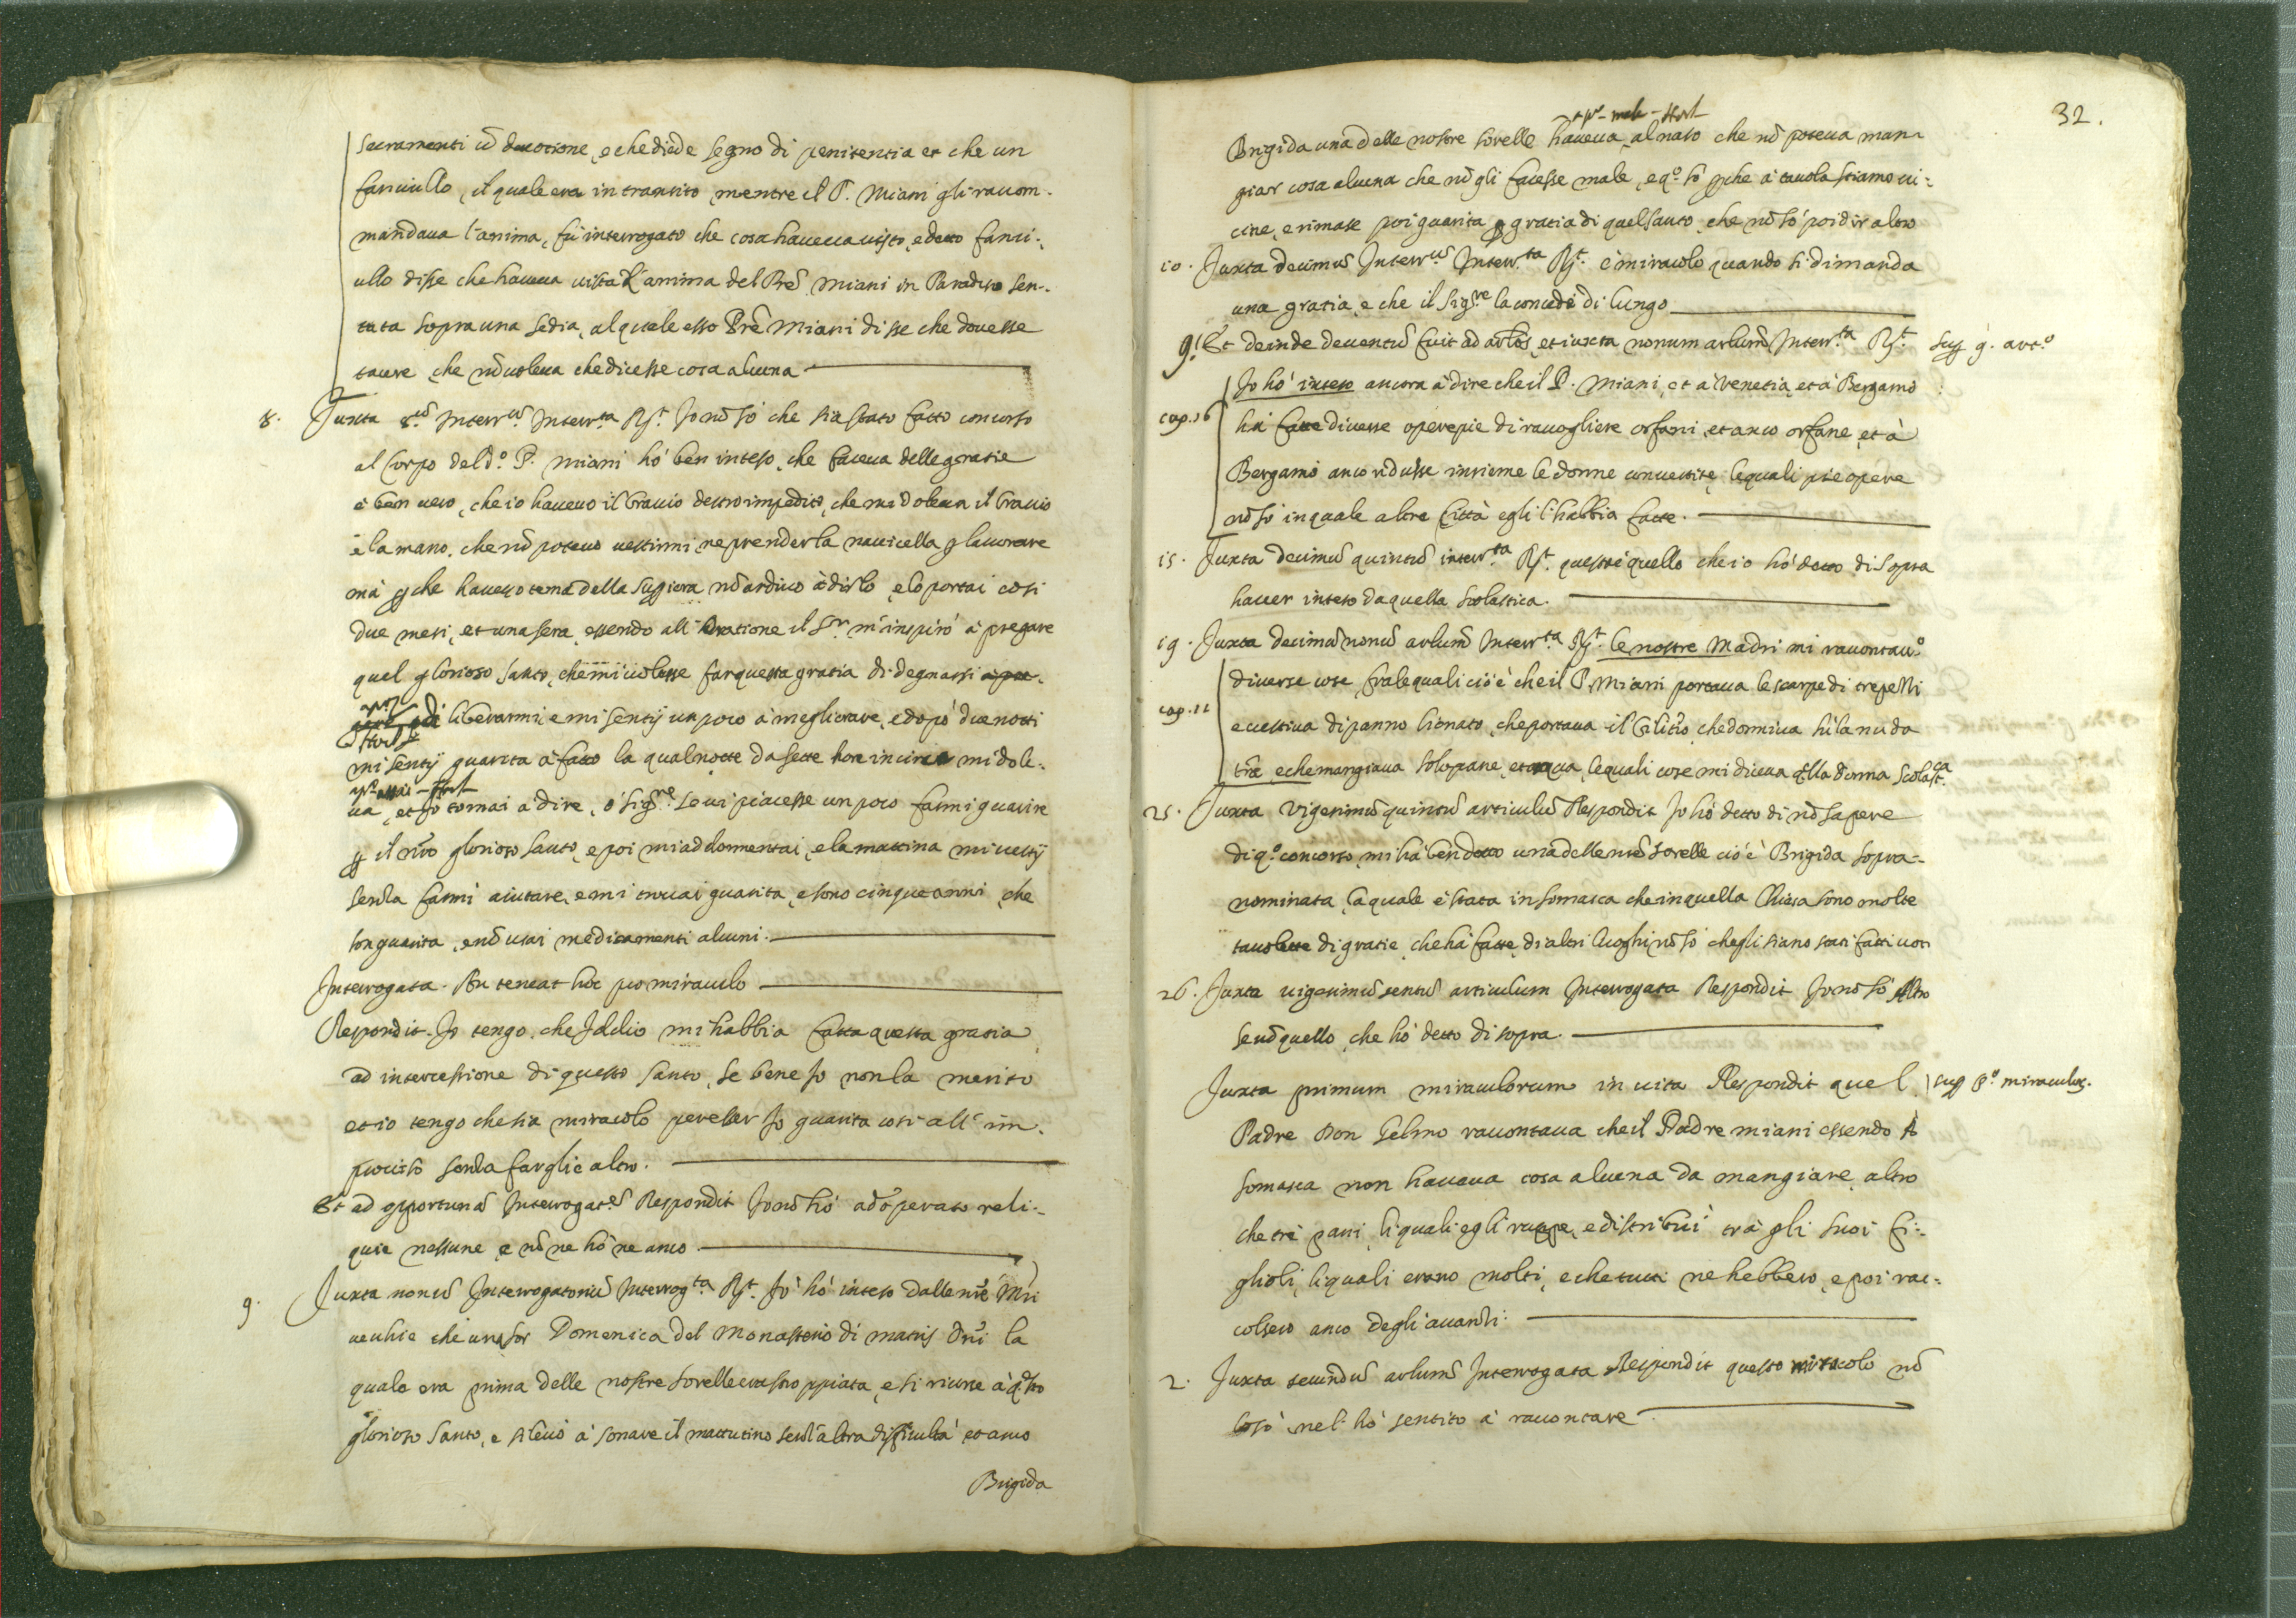 sacramenti cō devotione, e che diede segno di penitentia et che un
fanciullo, il quale era in transito mentre il P. Miani gli racom-
mandava l'anima, fù interrogato che cosa haveva visto, e detto fanci-
ullo disse che haveva vista l'anima del Prē Miani in Paradiso sen-
tata sopra una sedia, al quale esso Prē Miani disse che dovesse
tacere, che nō voleva che dicesse cosa alcuna
8. Juxta 8.ū Interr.ū Interr.ta Rs.t Jo nō sò che sia stato fatto concorso
al Corpo del d.o P. Miani hò ben inteso, che faceva delle gratie
è ben vero, che io havevo il bracio destro impedito, che mi doleva il bracio
e la mano, che nō potevo vestirmi, ne prender la navicella p lavorare
mà pche havevo tema della Supiora nō ardivo à dirlo, e lo portai cosi
due mesi, et una sera essendo all'oratione il S.r m'inspirò à pregare
quel glorioso santo, che mi volesse far questa gratia di degnarsi
di liberarmi, e mi sentij un poco à megliorare, e dopò due notti
mi sentij guarita à fatto la qual notte da sette hore incirca mi dole-
va, et Jo tornai à dire, ò Sig.re se vi piacesse un poco farmi guarire
p il nr̄o glorioso santo, e poi mi addormentai, e la mattina mi vestij
senza farmi aiutare, e mi trovai guarita, e sono cinque anni, che
son guarita, e nō usai medicamenti alcuni.
Interrogata. An teneat hoc pro miraculo
Respondit. Jo tengo, che Iddio mi habbia fatta questa gratia
ad intercessione di questo santo, se bene Jo non la merito
et io tengo che sia miracolo per esser Jo guarita cosi all'im-
proviso senza fargli altro.
Et ad opportunā Interrogat.ē Respondit Jo nō hò adoperato reli-
quie nessune, e nō ne hò ne anco.
9. Juxta nonū Interrogatoriū Interrog.ta Rs.t Jo hò inteso dalle nr̄e Mri
vechie che una sor Domenica del Monasterio di Matris Dn̄i la
quale era prima delle nostre sorelle era stroppiata, e si ricorse à q.sto
glorioso santo, e si levò à sonare il mattutino senz'altra difficultà et anco
Brigida
32.
Brigida una delle nostre sorelle haveva al naso che nō poteva man-
giar cosa alcuna che nō gli facesse male, e q.o sò pche à tavola stiamo vi-
cine, e rimase poi guarita p gratia di quel santo, che nō sò poi dir altro
10. Juxta decimū Interr.ū Interr.ta Rs.t è miracolo quando si dimanda
una gratia, e che il Sig.re la concede di lungo
9. Et deinde deventū fuit ad arlos, et iuxta nonum arlum̄ Interr.ta Rs.t
sup 9. art.o
Jo hò inteso ancora à dire che il P. Miani, et à Venetia, et à Bergamo
cap. 16
hà fatte diverse opere pie di racogliere orfani, et anco orfane, et à
Bergamo anco ridusse insieme le donne convertite, le quali pie opere
nō sò in quale altre Città egli l'habbia fatte.
15. Juxta decimū quintū interr.ta Rs.t quest'è quello che io hò detto di sopra
haver inteso da quella scolastica.
19. Juxta decimū nonū arlum̄ Interr.ta Rs.t le nostre Madri mi racontav.o
diverse cose, fra le quali cio è che il P. Miani portava le scarpe di tre pelli
cap. 11
e vestiva di panno lionato, che portava il Cilitio, che dormiva sù la nuda
tr̄a, e che mangiava solo pane, et aqua, le quali cose mi diceva q.lla donna Scolast.ca
25. Juxta Vigesimū quintū articulū Respondit Jo hò detto di nō sapere
di q.o concorso, mi hà ben detto una delle nr̄e sorelle cio è Brigida sopra-
nominata, la quale è stata in Somasca che in quella Chiesa sono molte
tavolette di gratie, che hà fatte, di altri luoghi nō sò che gli siano stati fatti voti
26. Juxta vigesimū sextū articulum Interrogata Respondit Jo nō sò Altro
se nō quello, che hò detto di sopra.
Juxta primum miraculorum in vita Respondit quel
sup p.o miraculor.
Padre Don Gelmo racontava che il Padre Miani essendo à
Somasca non haveva cosa alcuna da mangiare, altro
che tre pani, li quali egli ruppe, e distribuì trà gli suoi fi-
glioli, li quali erano molti, e che tutti ne hebbero, e poi rac-
colsero anco degli avanzi.
2. Juxta secundū arlum̄ Interrogata Respondit questo miracolo nō
lo sò, ne l'hò sentito à racontare